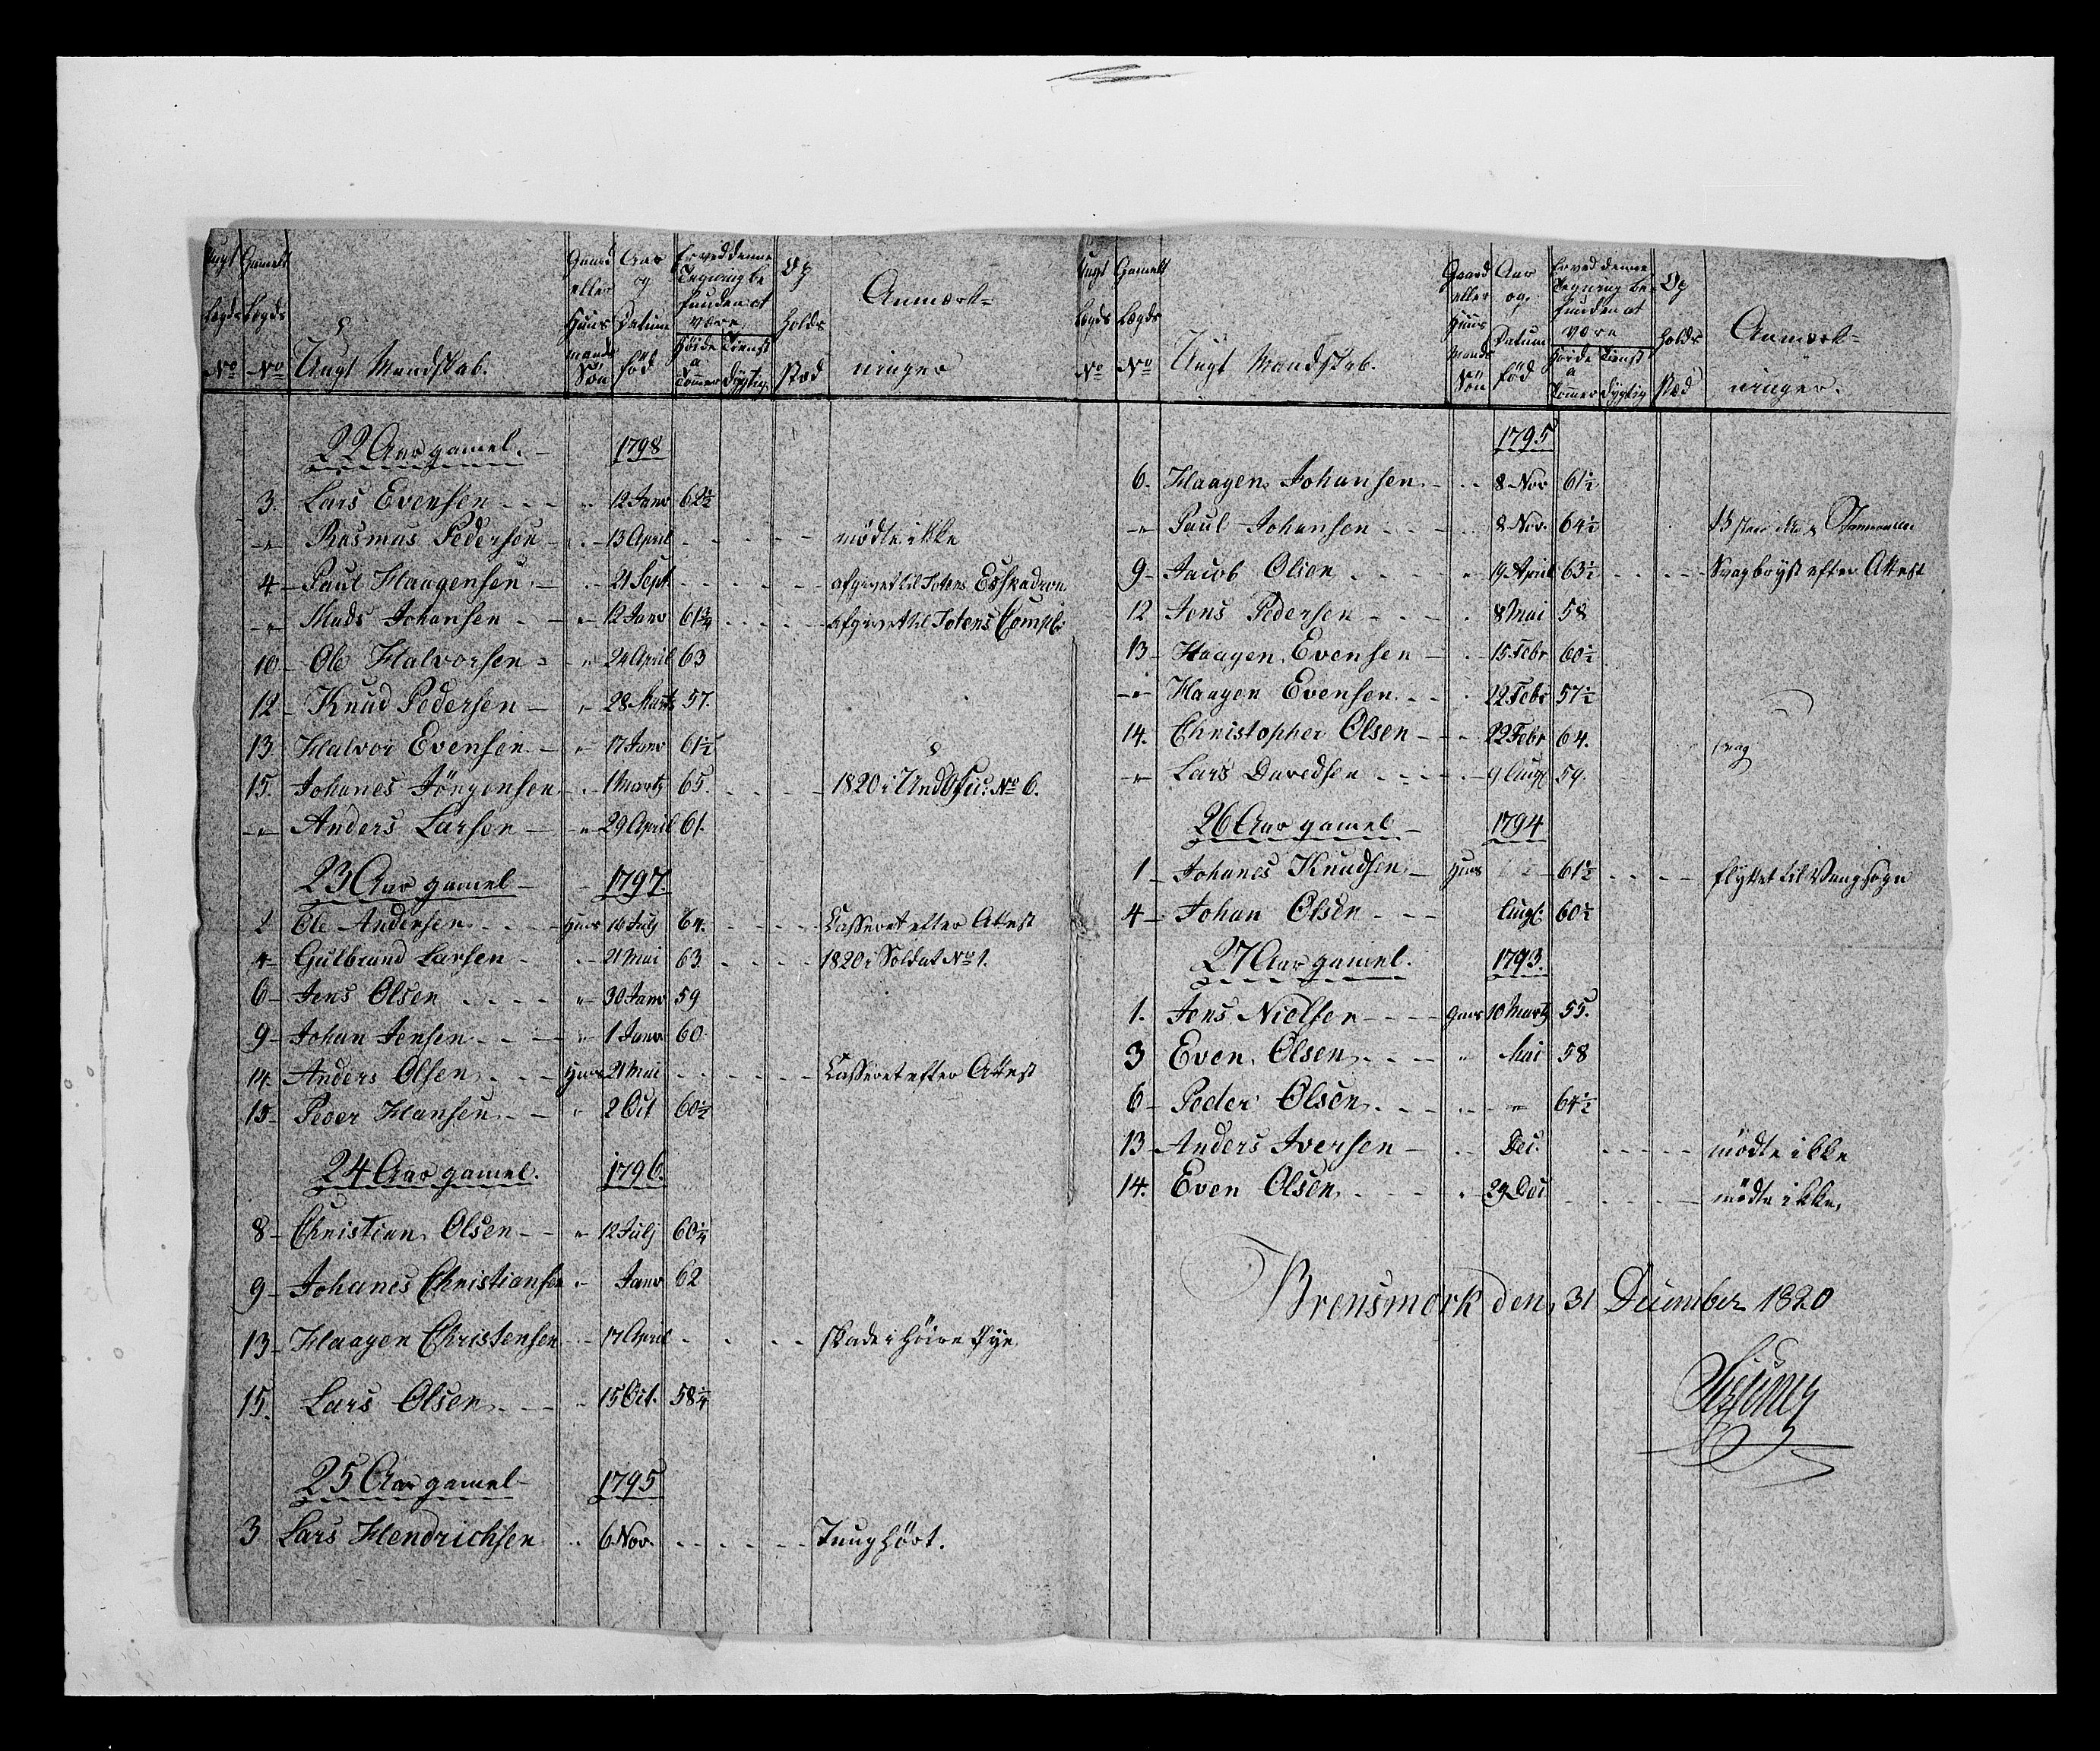 Ungt Lægds No
Gamelt Lægds No
Ungt Mandskab.
Gaard eller Huus mands Søn
Aar og Datum fød
Er ved denne Tegning befunden at være
Høide a Tommer
Tienst dygtig
Op holds Stæd
Anmærkninger
22 Aar gamel. 1798
3. Lars Evensen - - - " 12 Janr 62½
-"- Rasmus Pedersen - 13 April - - - - mödte ikke
4 - Paul Haagensen - 21 Sept. - - - - afgivet til Totens Esskadron
-"- Mads Johansen - - " 12 Janr 61¾ - - - - afgivet til Totens Comp:
10 - Ole Halvorsen - " 24 April 63
12 - Knud Pedersen - " 28 Martz 57.
13 Halvor Evensen - " 17 Janr 61½
15. Johanes Jörgensen - 1 Martz 65. - - - - 1820 i Und Ofic: No 6.
-"- Anders Larsen - " 29 April 61.
23 Aar gamel - 1797.
2 Ole Andersen - - - Huus 16 Julj 64. - - - - Casseret efter Attest
4 - Gulbrand Larsen - 21 Mai 63. - - - - 1820 i Soldat No 1.
6 - Jens Olsen - - - - " 30 Janr 59
9 - Johan Jensen - - - " 1 Janr 60.
14. Anders Olsen - - - Huus 21 Mai - - - - Casseret efter Attest
15 - Peder Hansen - - " 2 Oct 60½
24 Aar gamel. 1796.
8 - Christian Olsen - - " 12 Julj 60¼
9 - Johanes Christiansen " Janr 62
13 - Haagen Christensen - 17 April - - - - skade i höire Øye.
15. Lars Olsen - - - 15 Oct. 58¼
25 Aar gamel - 1795
3 Lars Hendrichsen - 6 Nov. - - - - Tunghört.
Ungt Lægds No
Gamelt Lægds No
Ungt Mandskab.
Gaard eller Huus Mands Søn
Aar og Datum fød
Er ved denne Tegning befunden at være
Høide a Tommer
Tienst dygtig
Op holds Stæd
Anmærkninger.
1795
6. Haagen Johansen - - 8 Nov 61½
-"- Paul Johansen - - - 8 Nov. 64½
9 - Jacob Olsen - - - " 19 April 63½ - - - - Svagbryst efter Attest
12 Jens Pedersen - - - 8 Mai 58
13 - Haagen Evensen - - 15 Febr 60½
-"- Haagen Evensen - - 22 Febr 57½
14. Christopher Olsen - - 22 Febr 64. svag
-"- Lars Davedsen - - - 9 Aug. 59.
26 Aar gamel - 1794
1 - Johanes Knudsen - Huus 61½ - - - - flyttet til Vangsogn
4 - Johan Olsen - - - Aug. 60½
27 Aar gamel. 1793.
1. Jens Nielsen - - - - Huus 10 Martz 55.
3 Even Olsen - - - " Mai 58
6 - Peder Olsen - - - " 64½
13 - Anders Iversen - - Dec. - - - - mödte ikke
14. Even Olsen - - - " 29 Dec - - - - mödte ikke,
Brensmork den 31 December 1820